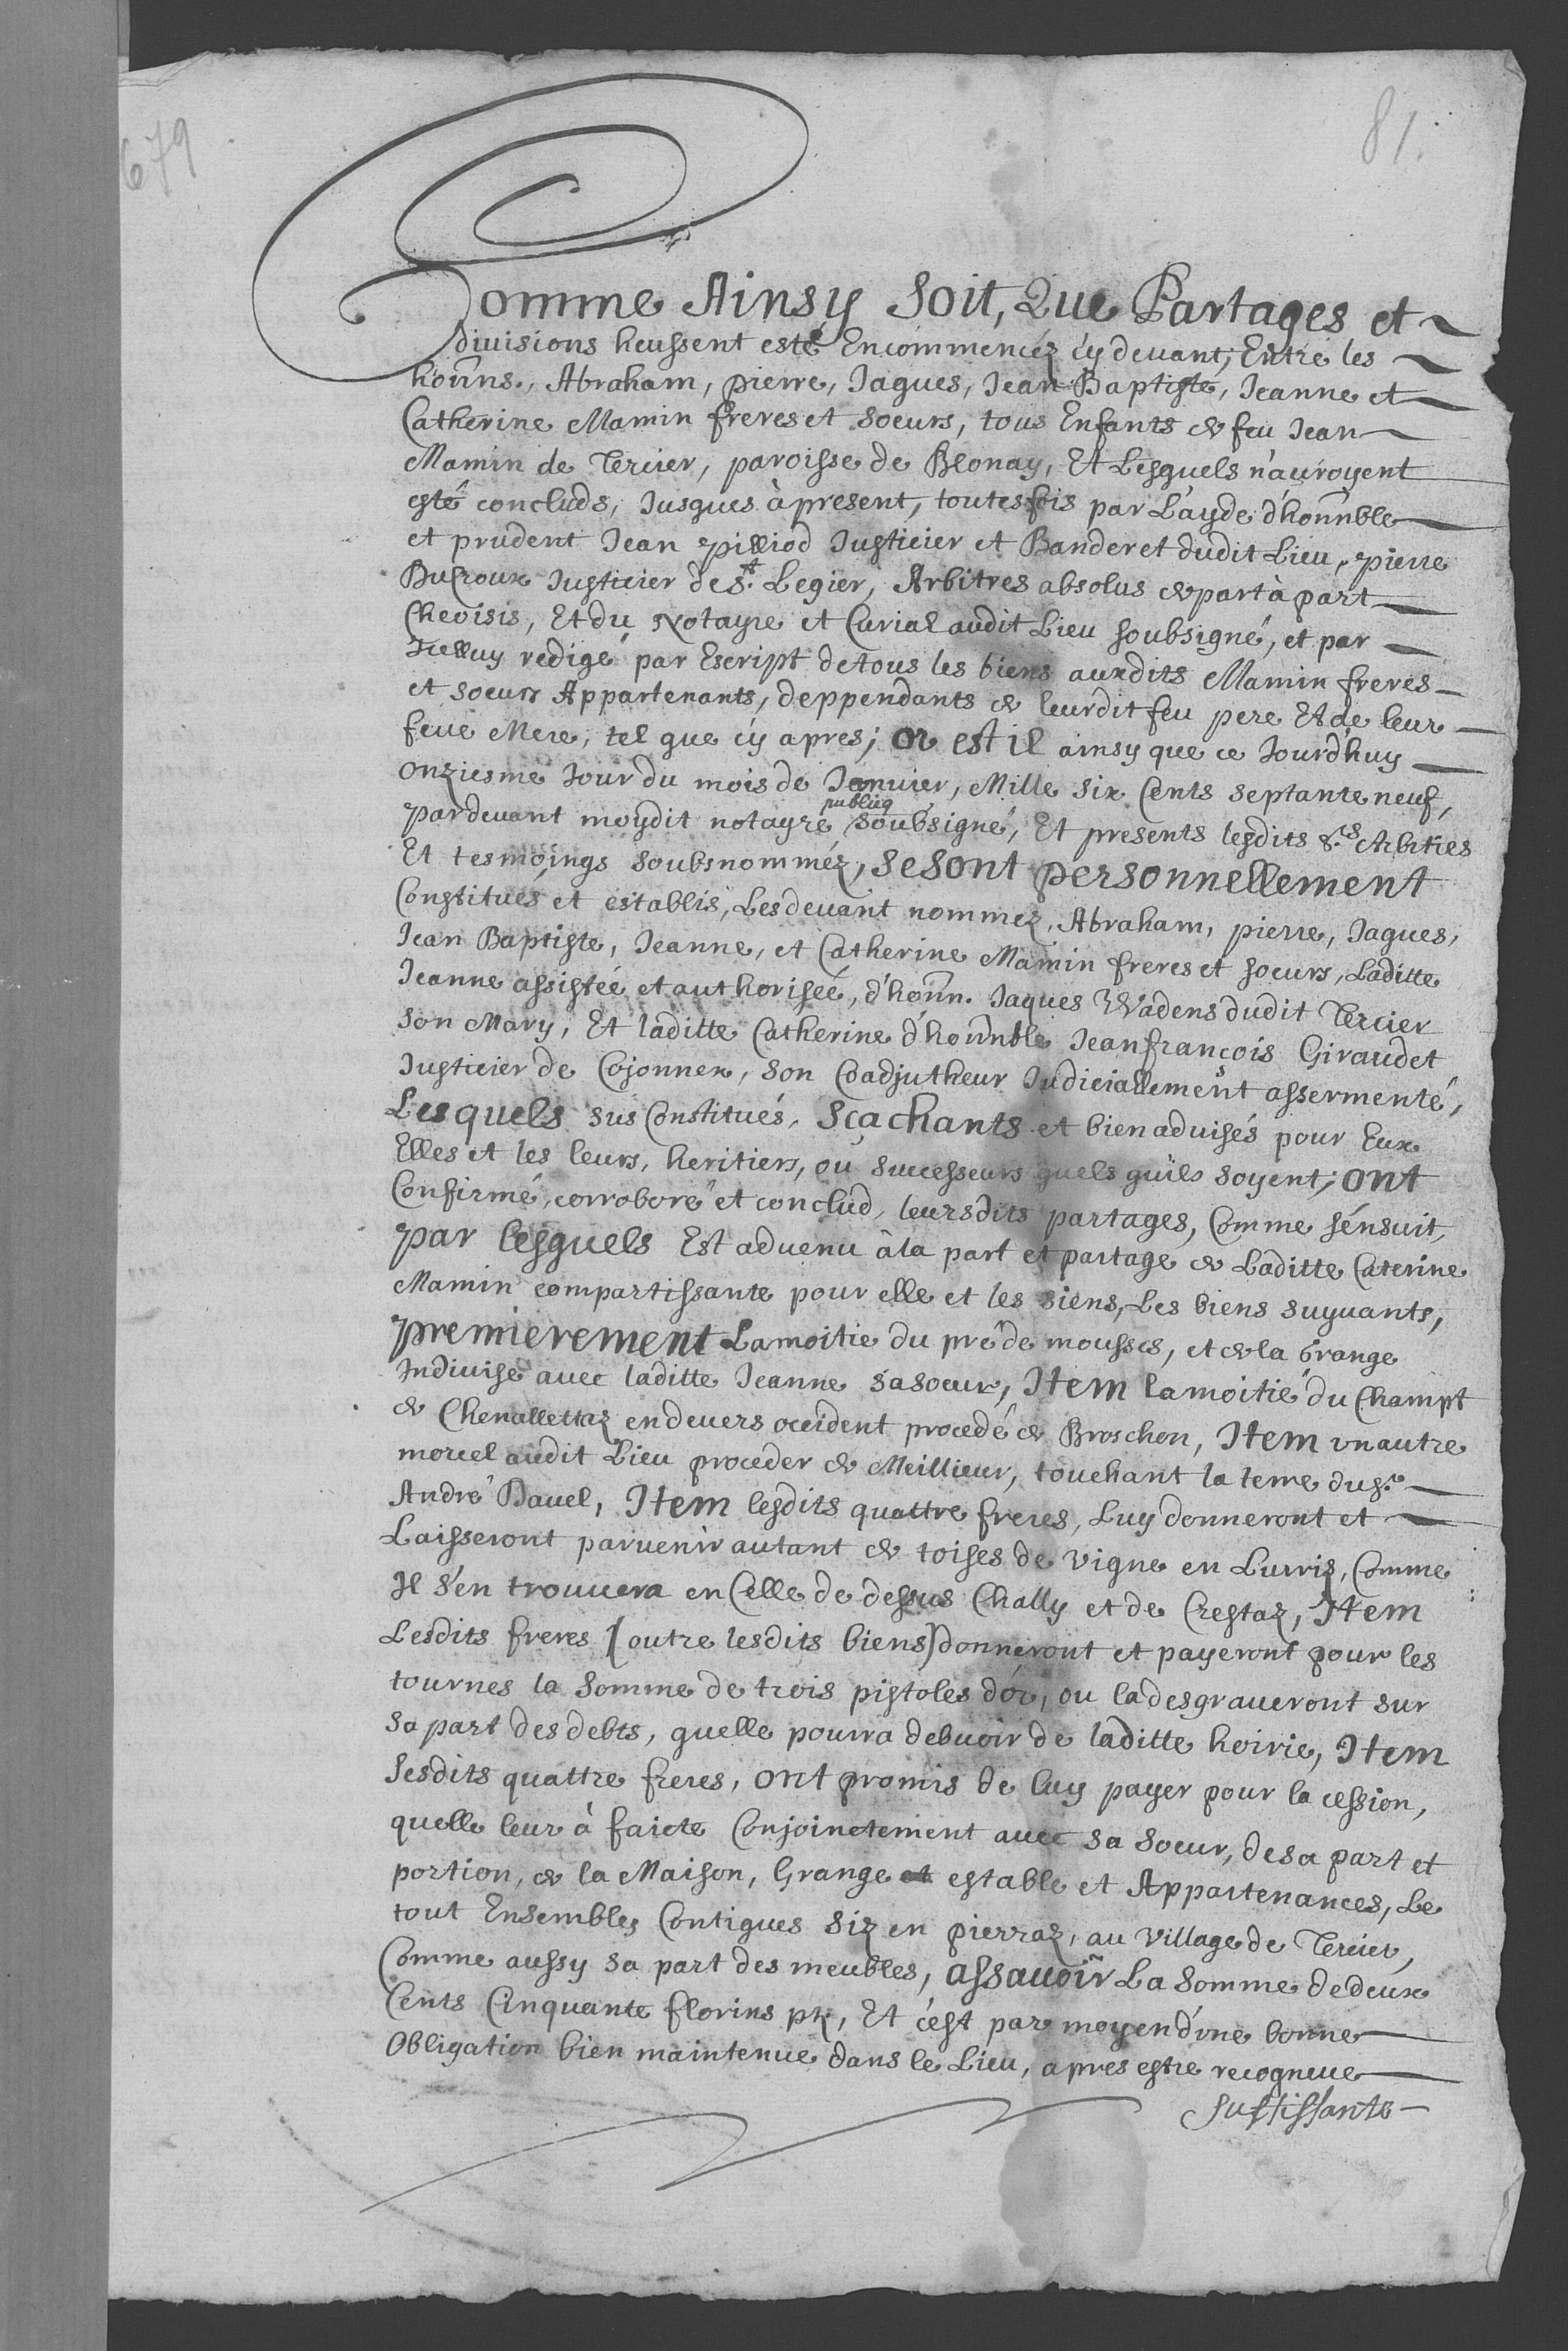 679
81.
Comme Ainsy Soit, Que Partages et
divisions heussent esté Encommencéz cy devant, Entre les
honns., Abraham, pierre, Jaques, Jean Baptiste, Jeanne et
Catherine Mamin freres et soeurs, tous Enfants de feu Jean
Mamin de Tercier, paroisse de Blonay, Et Lesquels n'auroyent
esté concluds, Jusques à present, toutesfois par L'ayde d'honnble
et prudent Jean Pilliod Justicier et Banderet dudit Lieu, pierre
Ducroux Justicier de St. Legier, Arbitres absolus de part à part
Cheoisis, Et du Notayre et Curial audit Lieu soubsigné, et par
Icelluy redigé par Escript de tous les biens auxdits Mamin freres
et soeurs Appartenants, deppendants de leurdit feu pere Et de leur
feüe Mere, tel que cy apres; or est il ainsy que ce Jourd'huy
onziesme Jour du mois de Janvier, Mille six Cents septante neuf,
pardevant moydit notayre publicq soubsigné, Et presents lesdits Srs Arbitres
Et tesmoings soubsnomméz, se sont personnellement
Constitués et establis, Les devant nommez, Abraham, pierre, Jaques,
Jean Baptiste, Jeanne, et Catherine Mamin freres et soeurs, Laditte
Jeanne assistée et authorisée, d'honn. Jaques Wadens dudit Tercier
son Mary, Et laditte Catherine d'honnble Jean françois Giraudet
Justicier de Cojonnex, son Coadjutheur Judiciallement assermenté,
Lesquels sus Constitués, Scachants et bien advisés pour Eux
Elles et les leurs, heritiers, ou successeurs quels qu'ils soyent; ont
Confirmé, corroboré et conclud, leursdits partages, Comme s'ensuit,
par lesquels Est advenu à la part et partage de Laditte Caterine
Mamin compartissante pour elle et les siens, Les biens suyvants,
premierement La moitie du pré de mousses, et de la Grange
Indivise avec laditte Jeanne sa soeur, Item la moitié du Champt
de Chenallettaz endevers occident procedé de Broschon, Item un autre
morcel audit Lieu proceder de Meillieur, touchant la terre du Sr.
André Davel, Item lesdits quattre freres, Luy donneront et
Laisseront parvenir autant de toises de vigne en Lurris, Comme
Il s'en trouvera en Celle de dessus Chally et de Crestaz, Item
Lesdits freres [outre lesdits biens] donneront et payeront pour les
tournes la Somme de trois pistoles d'or, ou la desgraveront sur
sa part des debts, quelle pourra debvoir de laditte hoirie, Item
Lesdits quattre freres, ont promis de luy payer pour la cession,
quelle leur à faicte Conjoinctement avec sa soeur, de sa part et
portion, de la Maison, Grange et estable et Appartenances, Le
tout Ensembles Contigues siz en pierraz, au Village de Tercier,
Comme aussy sa part des meubles, assavoir La Somme de deux
Cents Cinquante florins pr, Et c'est par moyen d'une bonne
Obligation bien maintenue dans le Lieu, apres estre recogneue
suffissante